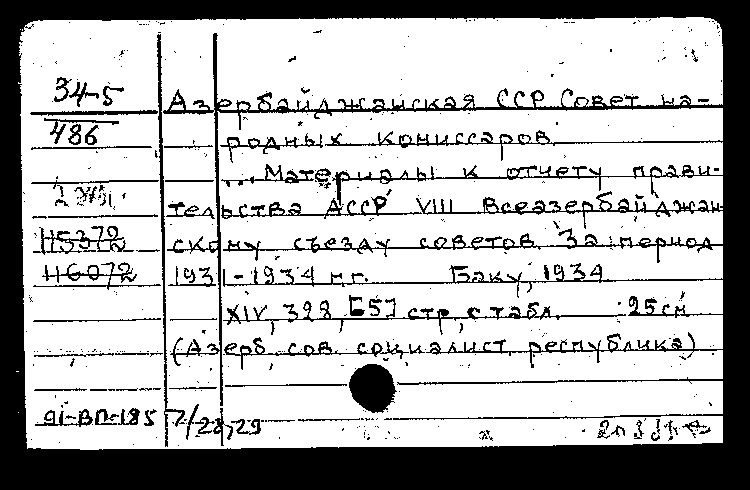 34-5
Азербайджанская ССР Совет на-
486
родных комиссаров.
... Материалы к отчету прави-
2
тельства АССР VIII Всеазербайджан
Н5372
скому съезду советов. За период
Н6072
1931-1934 г.г. Баку, 1934
XIV, 328, [5] стр, с табл. 25см
(Азерб. сов. социалист. республика)
91-ВП-185 7/28,29